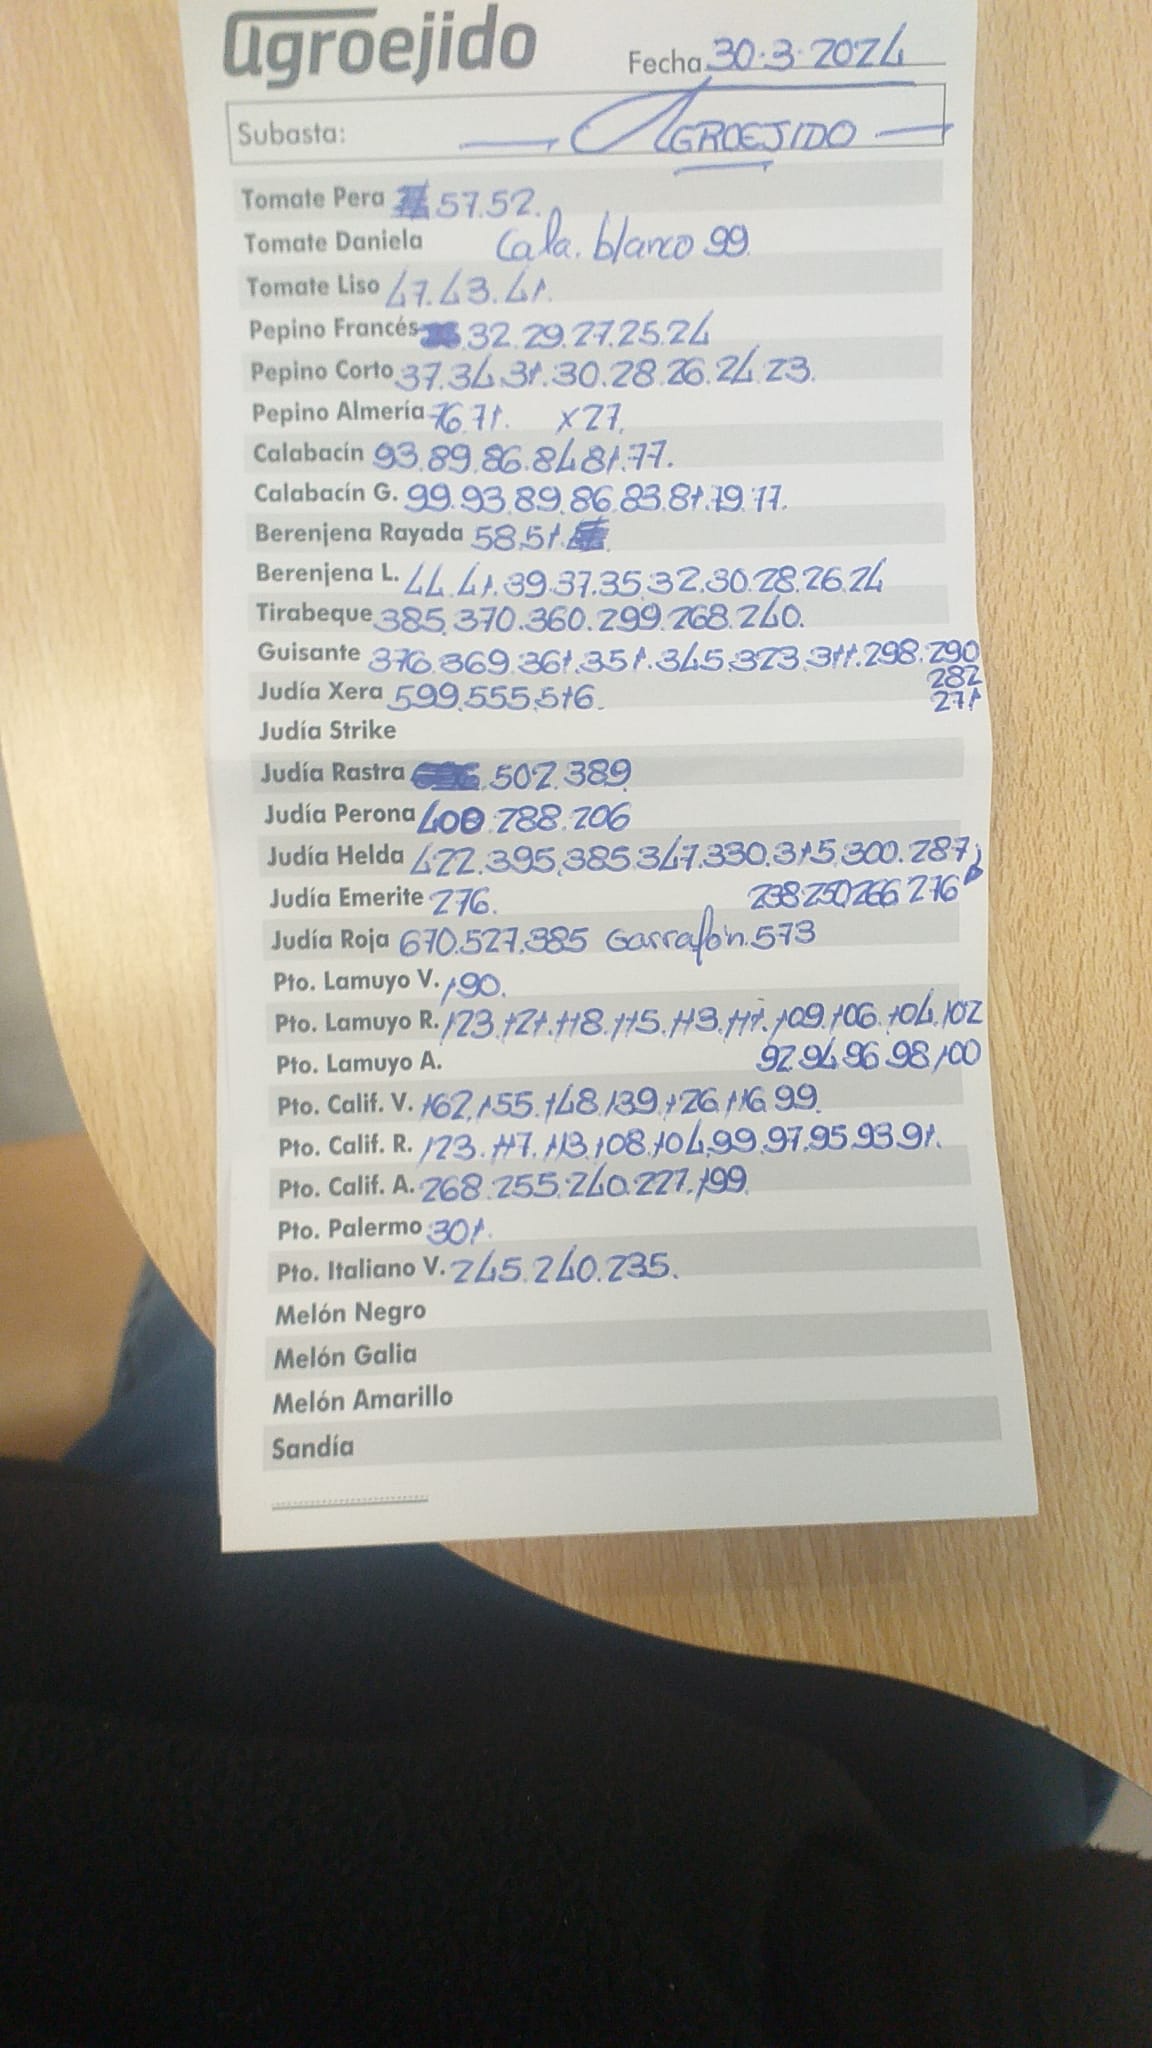 agroejido
Fecha 30.3.2024
Subasta: AGROEJIDO
Tomate Pera 57.52.
Tomate Daniela Cala. blanco 99
Tomate Liso 47.43.41.
Pepino Francés 32.29.27.25.24
Pepino Corto 37.34.31.30.28.26.24.23.
Pepino Almería 76.71. x27.
Calabacín 93.89.86.84.81.77.
Calabacín G. 99.93.89.86.83.81.79.77.
Berenjena Rayada 58.51.
Berenjena L. 44.41.39.37.35.32.30.28.26.24
Tirabeque 385.370.360.299.268.240.
Guisante 376.369.361.351.345.323.311.298.290
282
Judía Xera 599.555.516.
271
Judía Strike
Judía Rastra 502.389
Judía Perona 400.288.206
Judía Helda 422.395.385.347.330.315.300.287
Judía Emerite 276. 238 250 266 276
Judía Roja 670.527.385 Garrafón.573
Pto. Lamuyo V. 190.
Pto. Lamuyo R. 123.121.118.115.113.111.109.106.104.102
Pto. Lamuyo A. 92.94.96.98.100
Pto. Calif. V. 162.155.148.139.126.116.99.
Pto. Calif. R. 123.117.113.108.104.99.97.95.93.91.
Pto. Calif. A. 268.255.240.227.199.
Pto. Palermo 301.
Pto. Italiano V. 245.240.235.
Melón Negro
Melón Galia
Melón Amarillo
Sandía